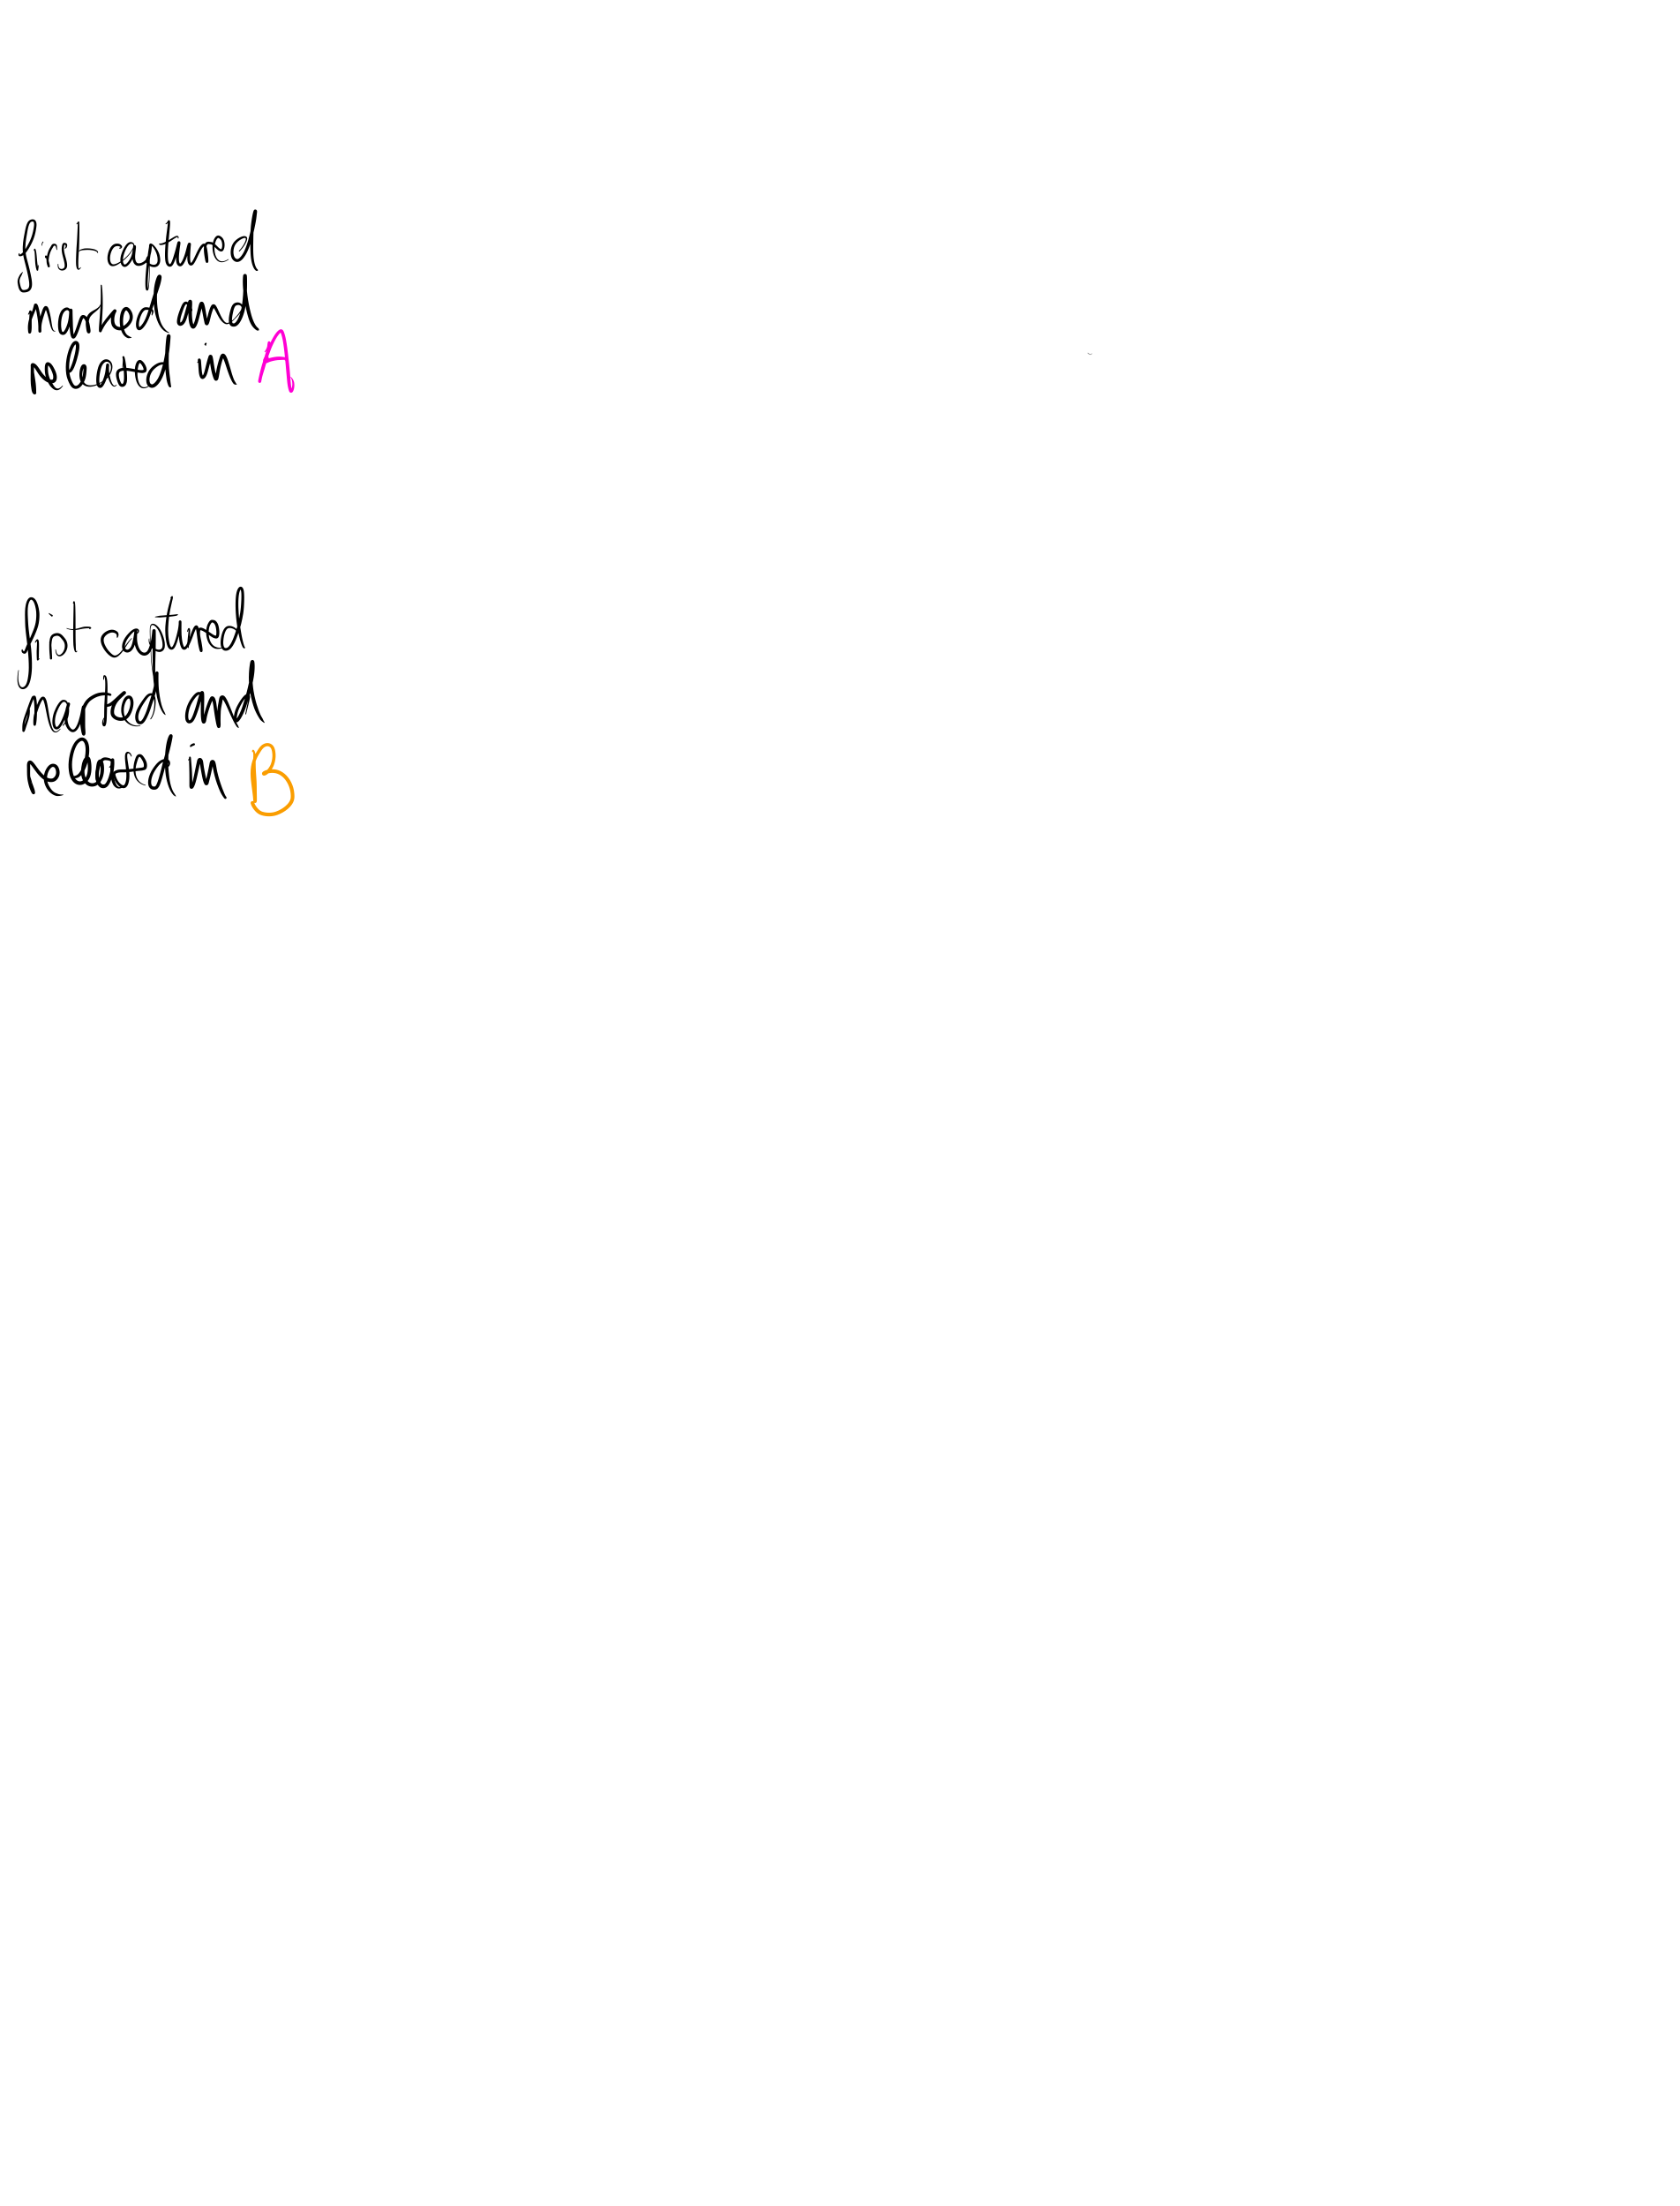 first captured
marked and
released in A
first captured
marked and
released in B